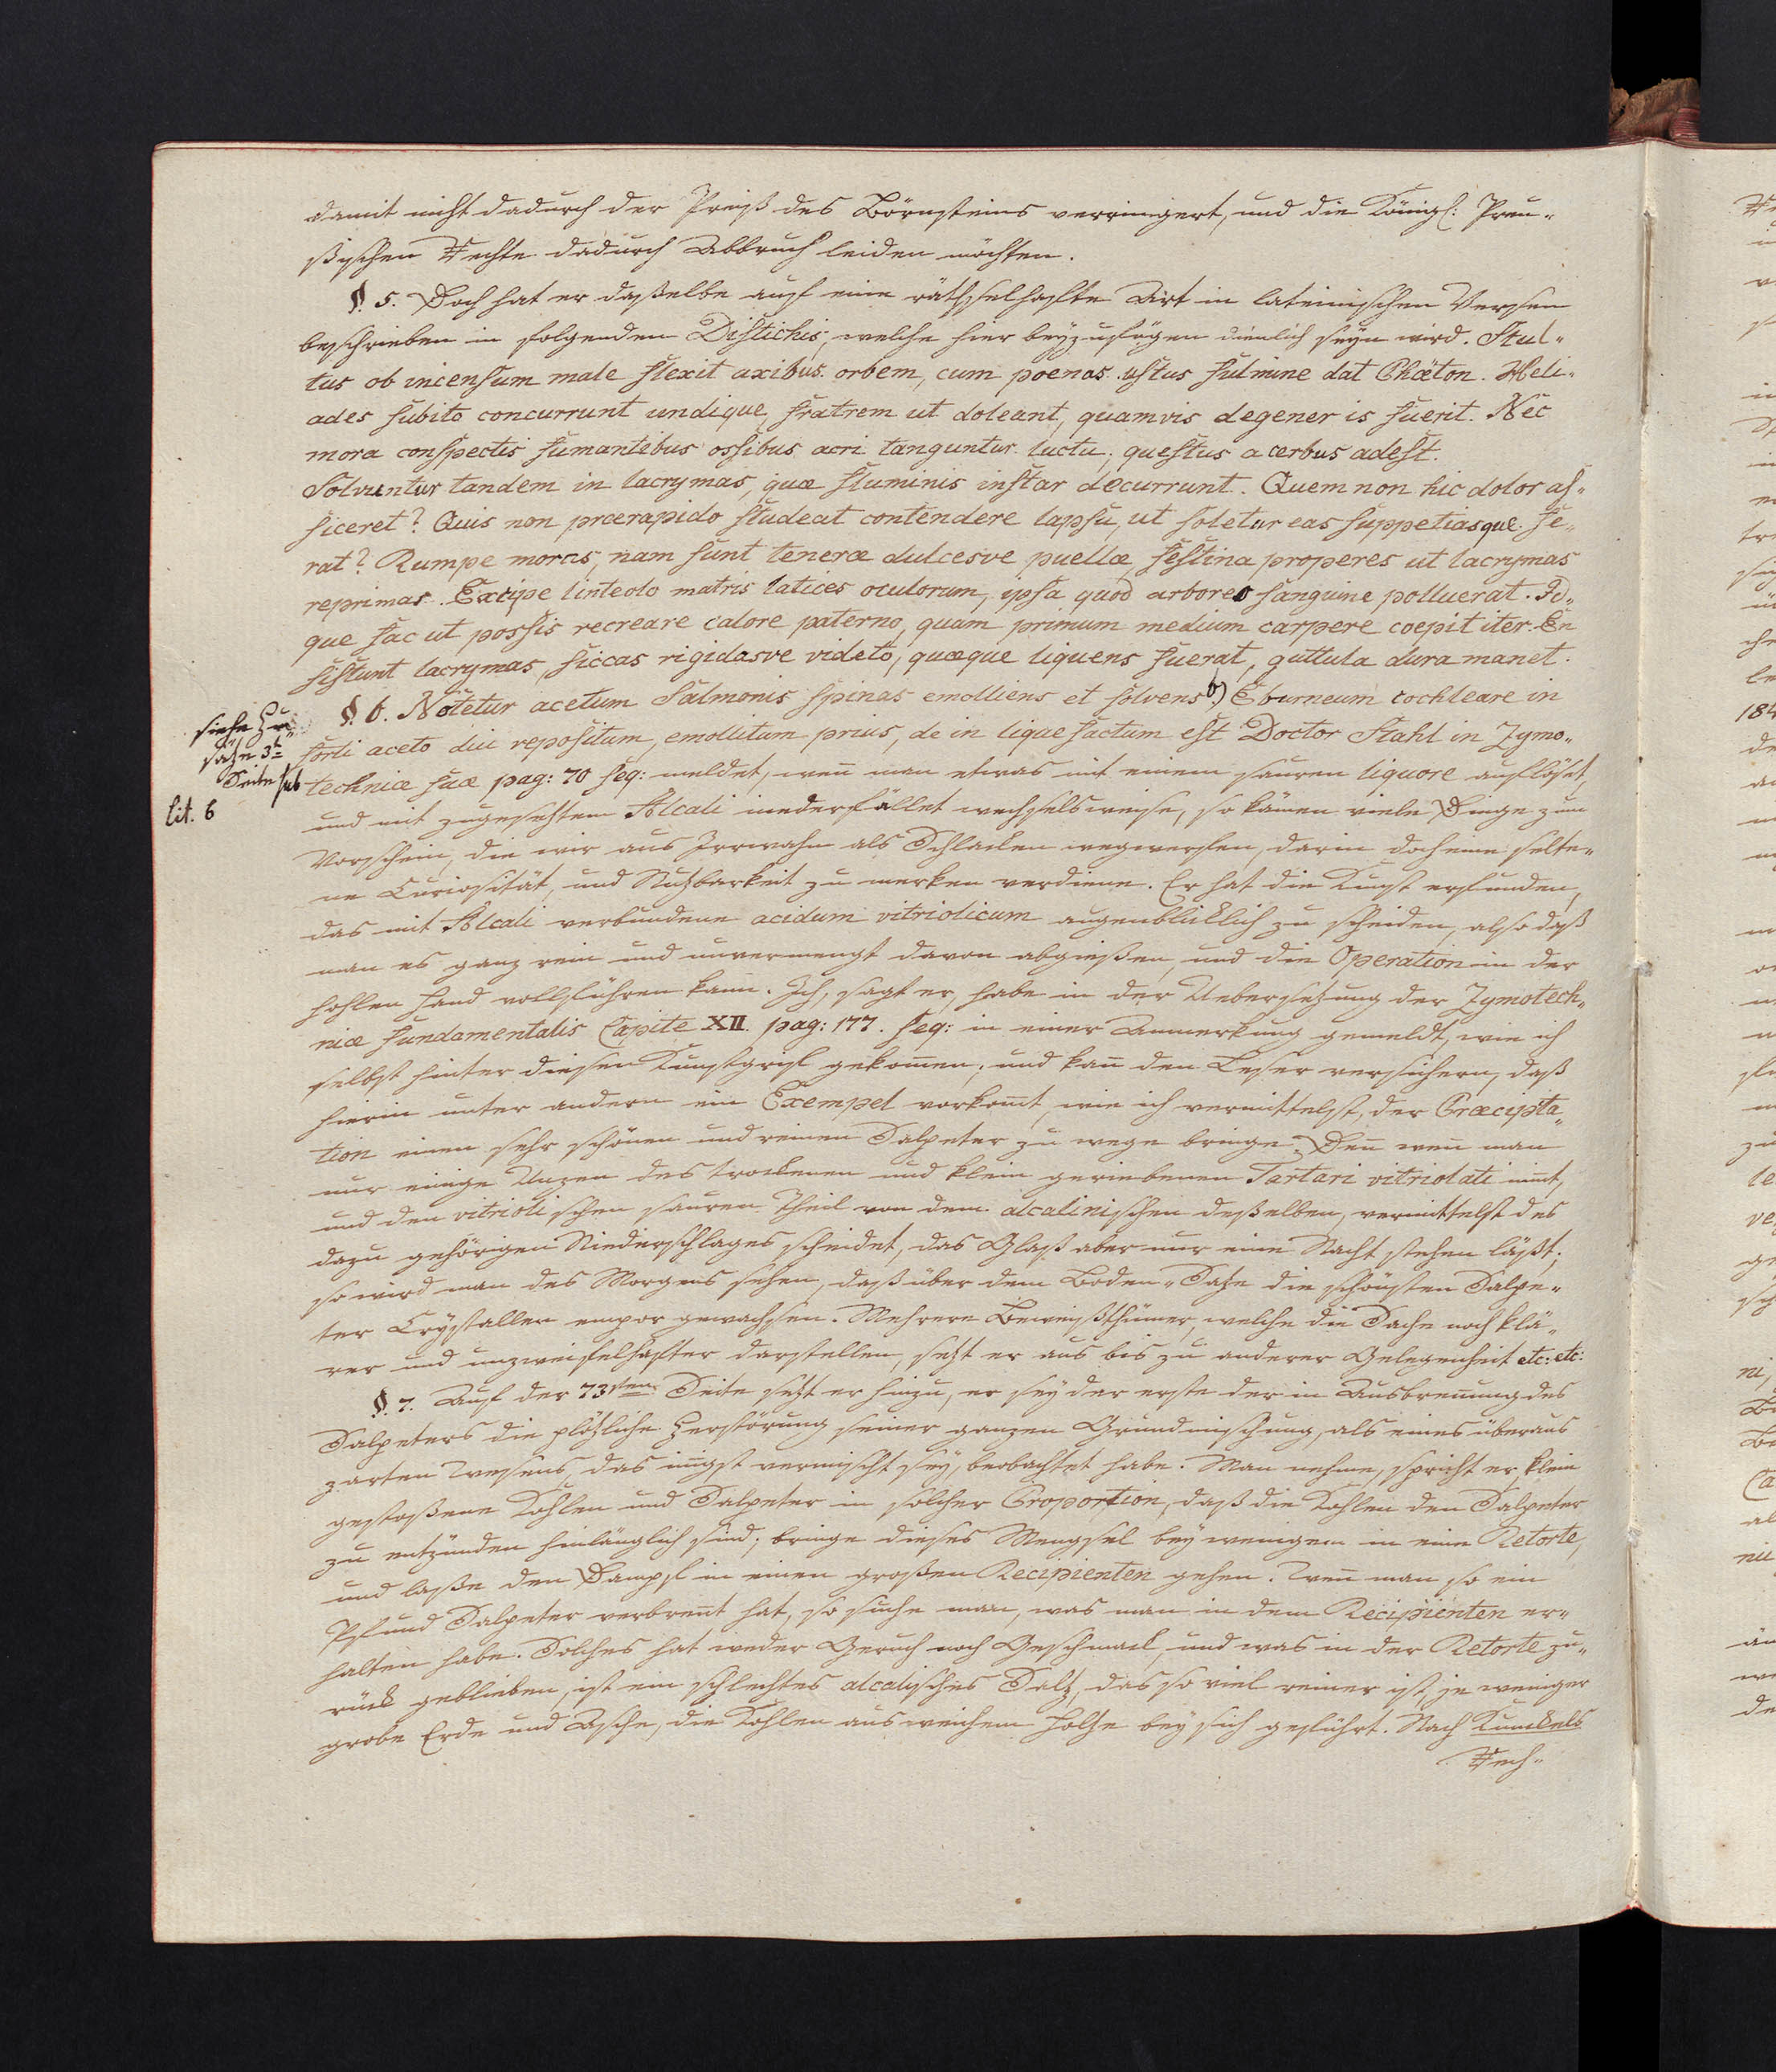 damit nicht dadurch der Preiß des Börnsteins verringert, und die Königl: Preu-
ßischen Rechte dadurch Abbruch leiden möchten.
§. 5. Doch hat er daßelbe auf eine räthselhafte Art in lateinischen Versen
beschrieben in folgenden Distichis, welche hier beyzufügen dienlich seyn wird. Stul-
tus ob incensum male flexit axibus orbem, cum poenas ustus fulmine dat Phæton. Heli-
ades subito concurrunt undique, fratrem ut doleant, quamvis degener is fuerit. Nec
mora conspectis fumantibus ossibus acri tanguntur luctu; questus acerbus adest.
Solvuntur tandem in lacrymas, quæ fluminis instar decurrunt. Quem non hic dolor af-
ficeret? Quis non prærapido studeat contendere lapsu, ut soletur eas suppetiasque fe-
rat? Rumpe moras, nam sunt teneræ dulcesve puellæ, festina properes ut lacrymas
reprimas. Excipe linteolo matris latices oculorum, ipsa quod arboreo sanguine polluerat. Id-
que fac ut possis recreare calore paterno, quam primum medium carpere coepit iter. En
sistunt lacrymas, siccas rigidasve videto, quæque liquens fuerat, guttula dura manet.
§. 6. Notetur acetum Salmonis spinas emolliens et solvens 6) Eburneum cochleare in
forti aceto diu repositum, emollitum prius, de in liquefactum est Doctor Stahl in Zymo-
techniæ suæ pag: 70 seq: meldet, wen̄ man etwas mit einem sauren liquore auflöset,
und mit zugesetztem Alcali niederfället wechselsweise, so kämen viele Dinge zum
Vorschein, die wir aus Irrwahn als Schlacken wegwerfen, darin doch eine selte-
ne Curiosität, und Nutzbarkeit zu merken verdiene. Er hat die Kunst erfunden,
das mit Alcali verbundene acidum vitriolicum augenblicklich zu scheiden, also daß
man es ganz rein und unvermengt davon abgießen, und die Operation in der
hohlen Hand vollführen kann. Ich, sagt er, habe in der Uebersetzung der Zymotech-
niæ fundamentalis Capite XII. pag: 177. seq: in einer Anmerkung gemeldt, wie ich
selbst hinter diesen Kunstgrif gekom̄en; und kan̄ den Leser versichern, daß
hierin unter andern ein Exempel vorkom̄t, wie ich vermittelst der Præcipita-
tion einen sehr schönen und reinen Salpeter zu wege bringe. Den̄ wen̄ man
nur einige Unzen des trockenen und klein geriebenen Tartari vitriolati nim̄t,
und den vitriolischen sauren Theil von dem alcalinischen deßelben, vermittelst des
dazu gehörigen Niederschlages scheidet, das Glaß aber nur eine Nacht stehen läßt;
so wird man des Morgens sehen, daß über dem Boden-Satze die schönsten Salpe-
ter Crystallen empor gewachsen. Mehrere Beweißthümer, welche die Sache noch klä-
rer und unzweifelhafter darstellen, setzt er aus bis zu anderer Gelegenheit etc: etc:
§. 7. Auf der 73sten Seite setzt er hinzu, er sey der erste der in Ausbrennung des
Salpeters die plötzliche Zerstörung seiner ganzen Grundmischung, als eines überaus
zarten Wesens, das innigst vermischt sey, beobachtet habe. Man nehme, spricht er, klein
gestoßene Kohlen und Salpeter in solcher Proportion, daß die Kohlen den Salpeter
zu entzünden hinlänglich sind; bringe dieses Mengsel bey wenigem in eine Retorte,
und laße den Dampf in einen großen Recipienten gehen. Wen̄ man so ein
Pfund Salpeter verbren̄t hat, so suche man, was man in dem Recipienten er-
halten habe. Solches hat weder Geruch noch Geschmack, und was in der Retorte zu-
rück geblieben, ist ein schlechtes alcalisches Saltz, das so viel reiner ist, je weniger
grobe Erde und Asche, die Kohlen aus weichem Holtze bey sich geführt. Nach Kunckels
Rech-
siehe Zu-
satze 3te
Seite sub
lit. 6